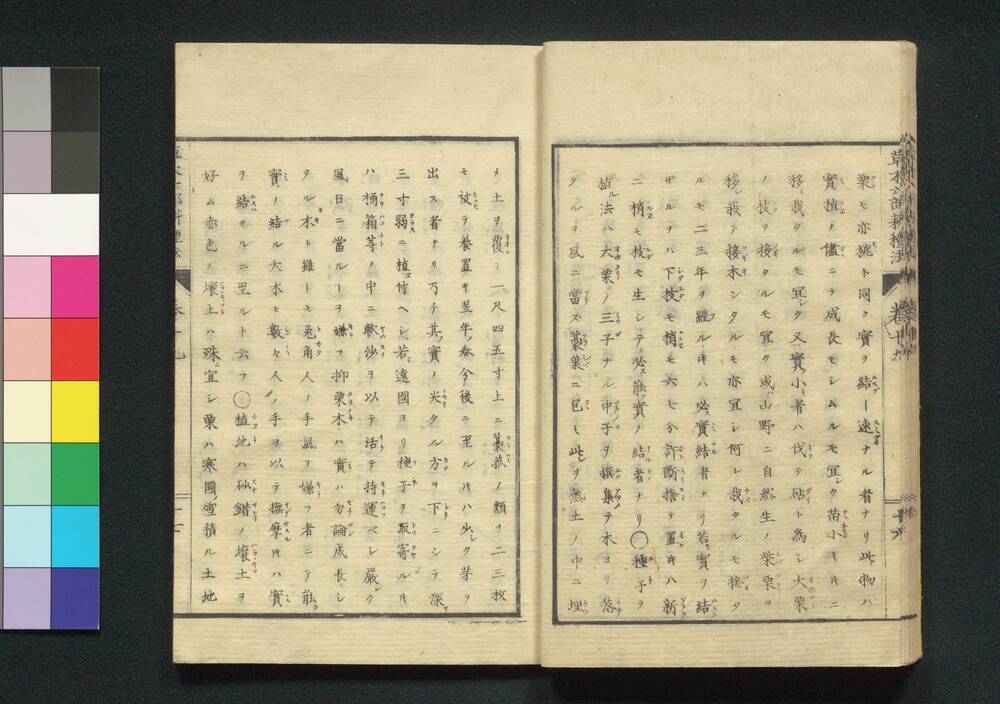 栗モ亦桃ト同ク實ヲ結ー速ナル者ナリ此物ハ
實植ノ儘ニテ成長セシムルモ宜シク苗小キニ
移シ栽タルモ宜シク又實小キ者ハ伐テ砧ト為シ大栗
ノ枝ヲ接タルモ宜ク或ハ山野ニ自然生ノ柴栗ヲ
移シ栽テ接木シタルモ亦宜シ何レ栽タルモ接タ
ルモ二三年ヲ經ルキハ必ス實結者ナリ若シ實ヲ結
ザルヲバ下枝モ梢モ六七分許斷捨テ置キハ新
ニ梢モ枝モ生シテ必ス能實ノ結者ナリ〇種子ヲ
植ル法ハ大栗ノ三子ナル中子ヲ撰集テ木ヨリ落
タルヲ風ニ當ズ藁薬ニ包ミ此ヲ蒸土ノ中ニ埋
メ土ヲ覆ー一尺四五寸上ニ藁菰ノ類ヲ二三枚
モ被テ養置キ翌年ノ春今後ニ至ルキハ少シク芽ヲ
出ス者ナリ乃チ其實ノ尖タル方ヲ下ニシテ深サ
三寸弱ニ植エ付ヘシ若シ遠國ヨリ種子ヲ取寄ルキ
ハ桶箱等ノ中ニ軟沙ヲ以テ活テ持運ベシ嚴シク
風日ニ當ルーヲ嫌フ抑栗木ハ實ハ勿論成長シ
タル木ト雖トモ兎角人ノ手風ヲ嫌フ者ニテ能ク
實ノ結ル大木モ數々人ノ手ヲ以テ撫摩ルキハ實
ヲ結サルニ至ルト云フ〇植地ハ砂錯ノ壤土ヲ
好ム赤色ノ壤土ハ殊ニ宜シ栗ハ寒國ノ雪積ル土地